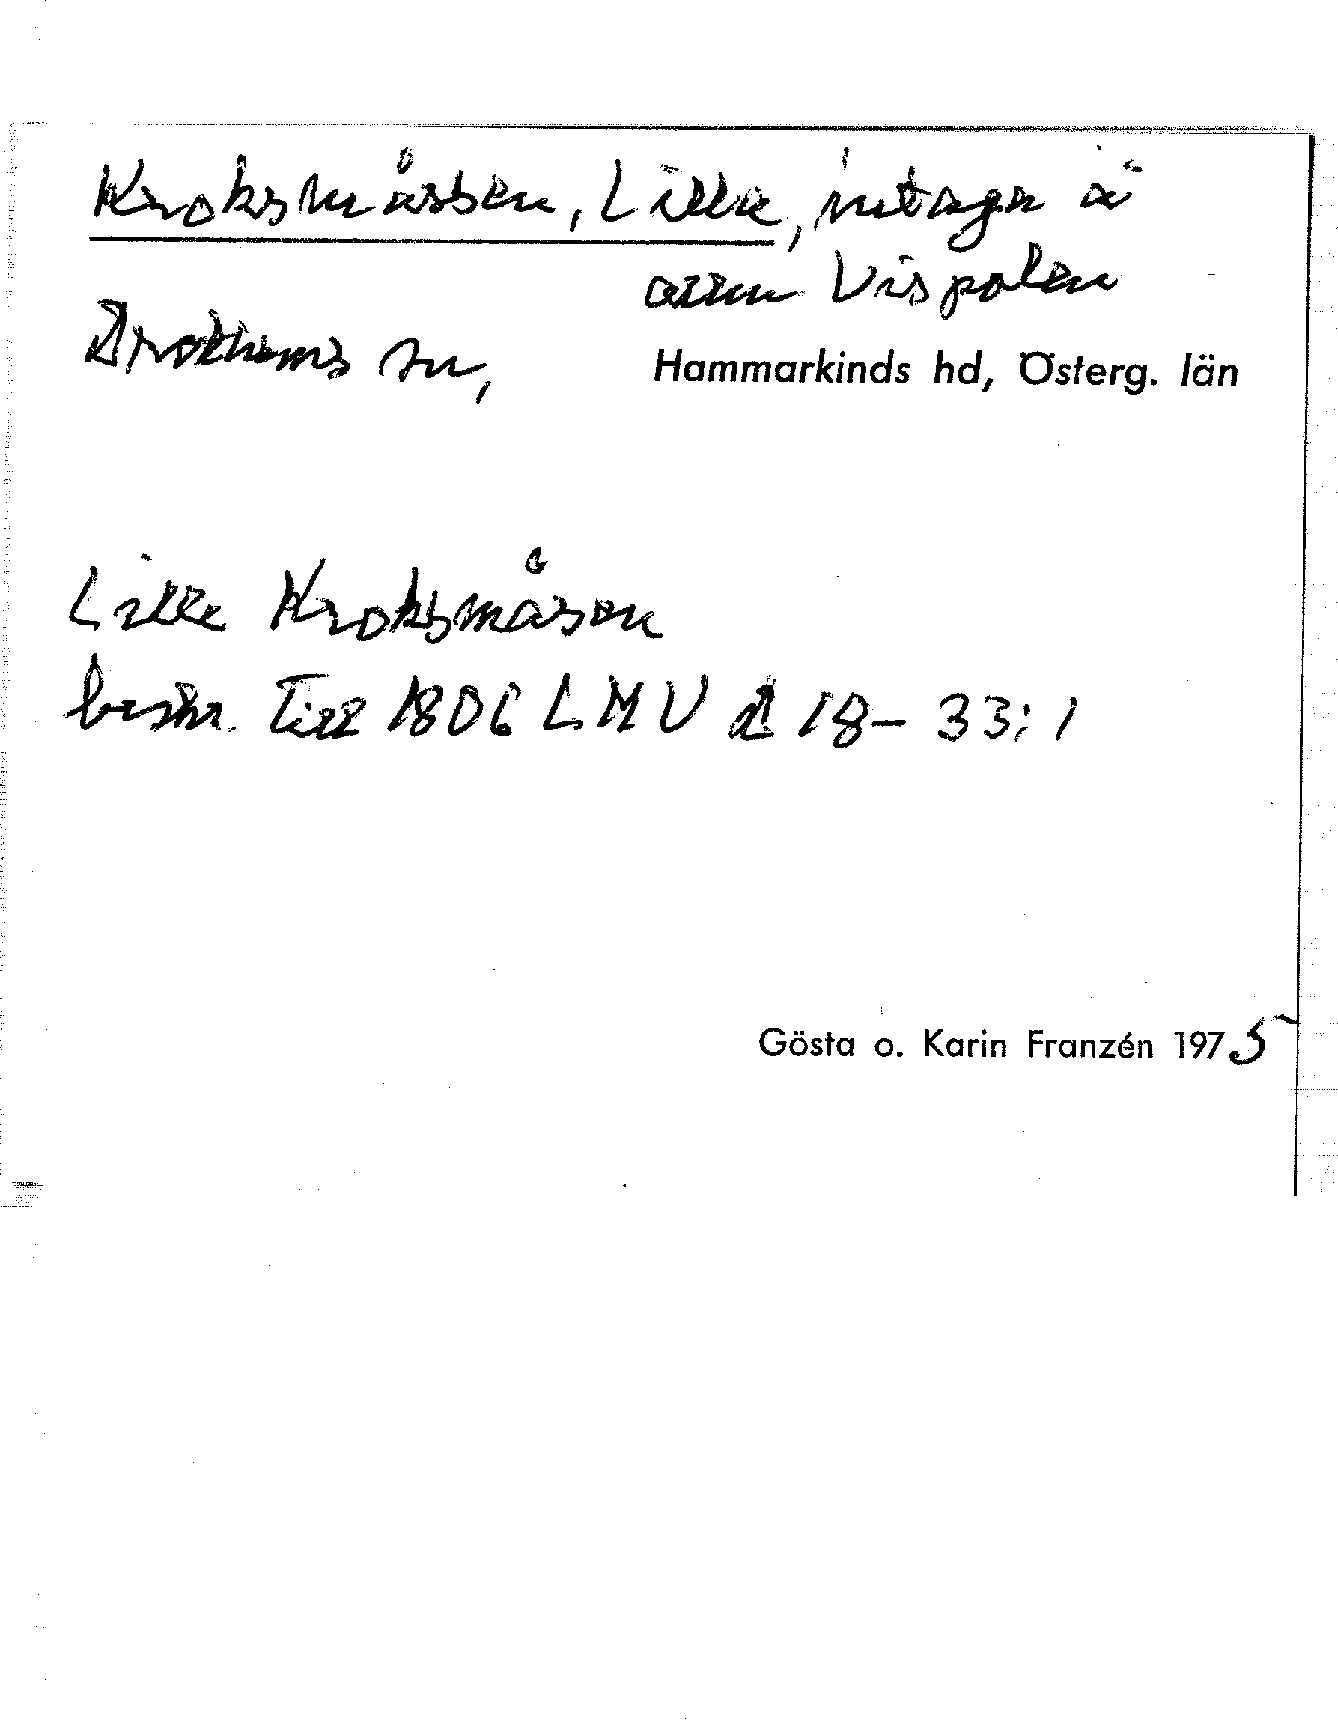 Kroksmåssen, Lilla, intaga å
allm Vispolen
Drothems sn,
Hammarkinds hd, Österg. län
Lille Kroksmåsen
beskr. Till 1806 LMV D 18-33:1
Gösta o. Karin Franzén 1975